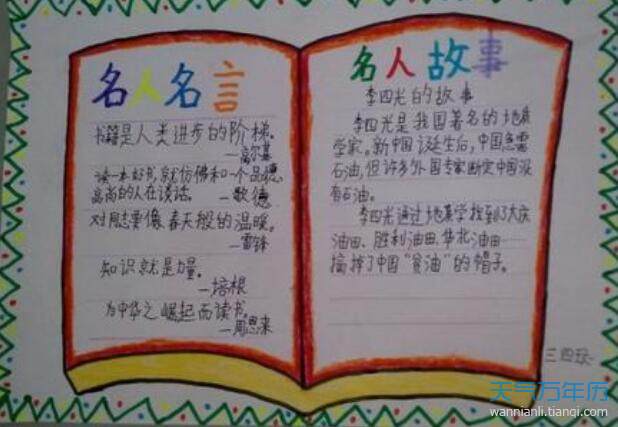 名人名言
书籍是人类进步的阶梯。
—高尔基
读一本好书,就仿佛和一个品德
高尚的人在谈话。—歌德
对同志要像春天般的温暖。
—雷锋
知识就是力量。
—培根
为中华之崛起而读书。
—周恩来
名人故事
李四光的故事
李四光是我国著名的地质
学家。新中国诞生后,中国急需
石油,但许多外国专家断定中国没
有石油。
李四光通过地质学找到了大庆
油田、胜利油田、华北油田……
摘掉了中国“贫油”的帽子。
三四班
天气万年历
wannianli.tianqi.com